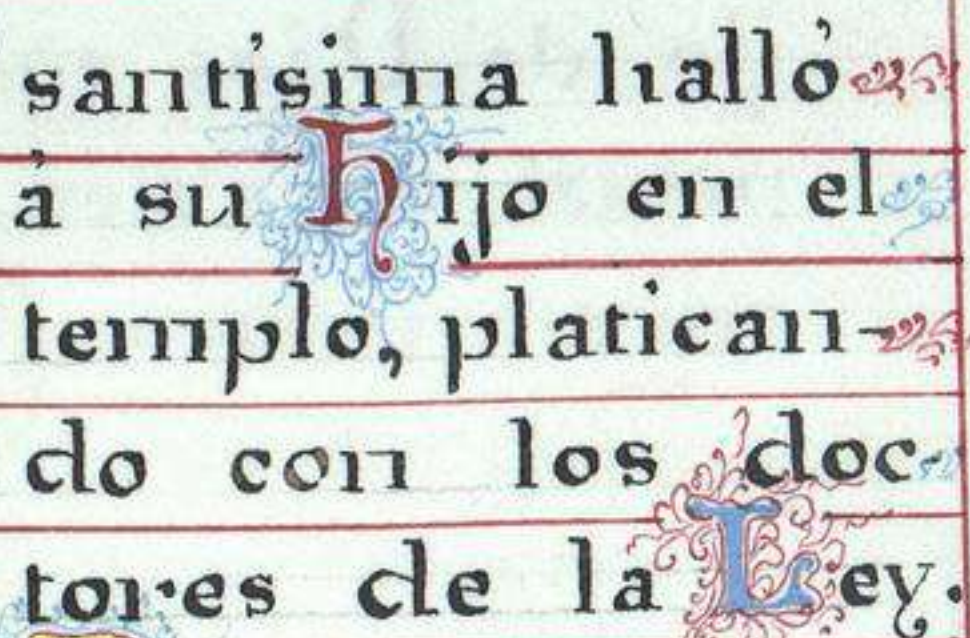 santísima halló
á su Hijo en el
templo, platican-
do con los doc-
tores de la Ley.